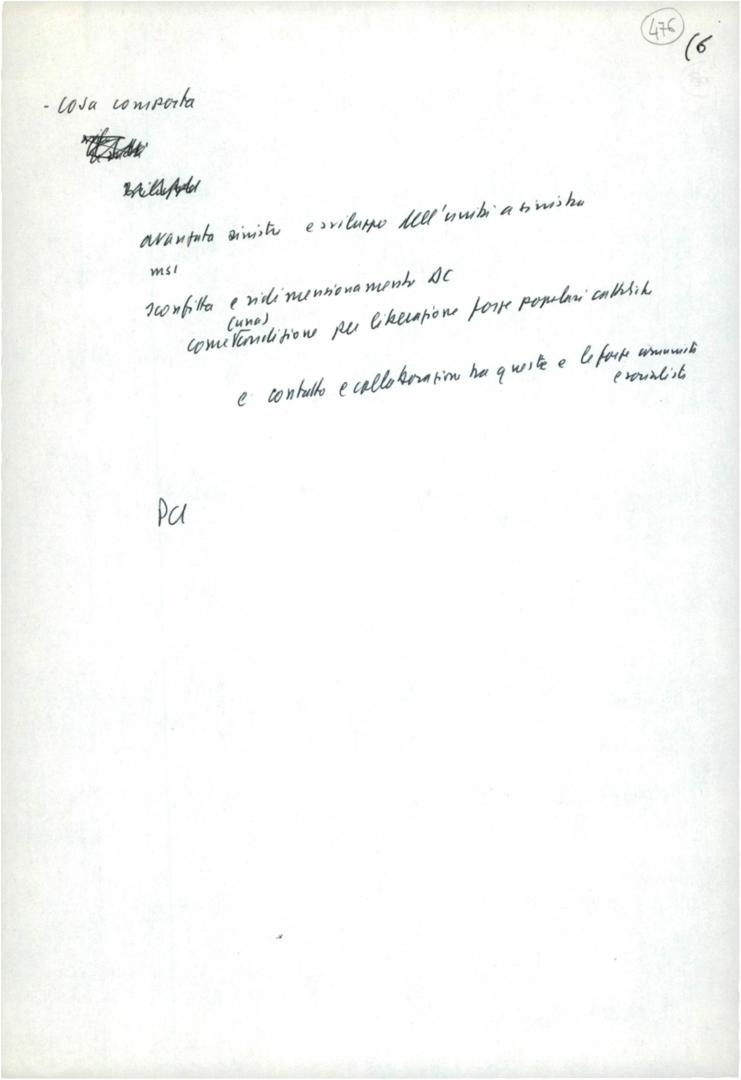 476
(6
- Cosa comporta
avanzata sinistre e sviluppo dell'unità a sinistra
MSI
sconfitta e ridimensionamento DC
(una)
come condizione per liberazione forze popolari cattoliche
e contatto e collaborazione tra queste e le forze comuniste
e socialiste
PCI